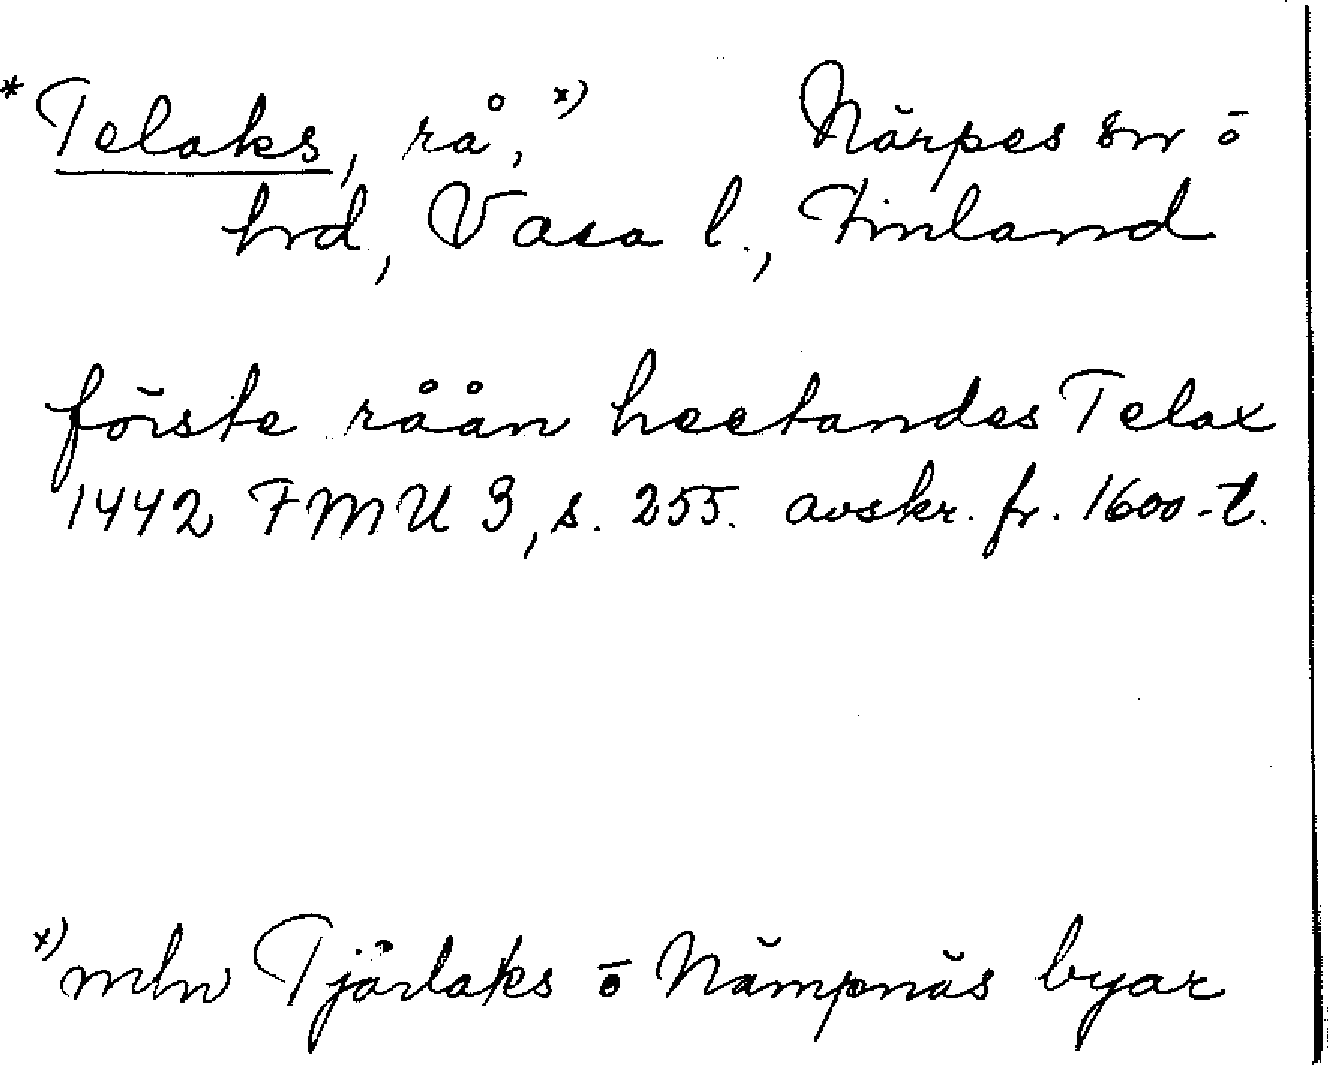 *Telaks, rå, x) Närpes sn o
hrd, Vasa l., Finland
förste råån heetandes Telax
1442 FMU 3, s. 255. avskr. fr. 1600-t.
x) mln Tjärlaks o Nämpnäs byar